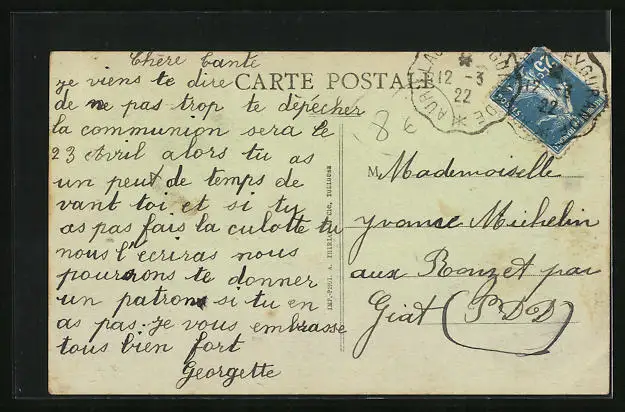 Chère Tante
je viens te dire
CARTE POSTALE
de ne pas trop te dépécher
la communion sera le
23 Avril alors tu as
un peut de temps de
vant toi et si tu
as pas fais la culotte tu
nous l'écriras nous
pourrons te donner
un patron si tu en
as pas. je vous embrasse
tous bien fort
Georgette
12 - 3
22
12 - 3
22
25
8 €
M Mademoiselle
Yvonne Michelin
aux Rouzet par
Giat (P.D.D)